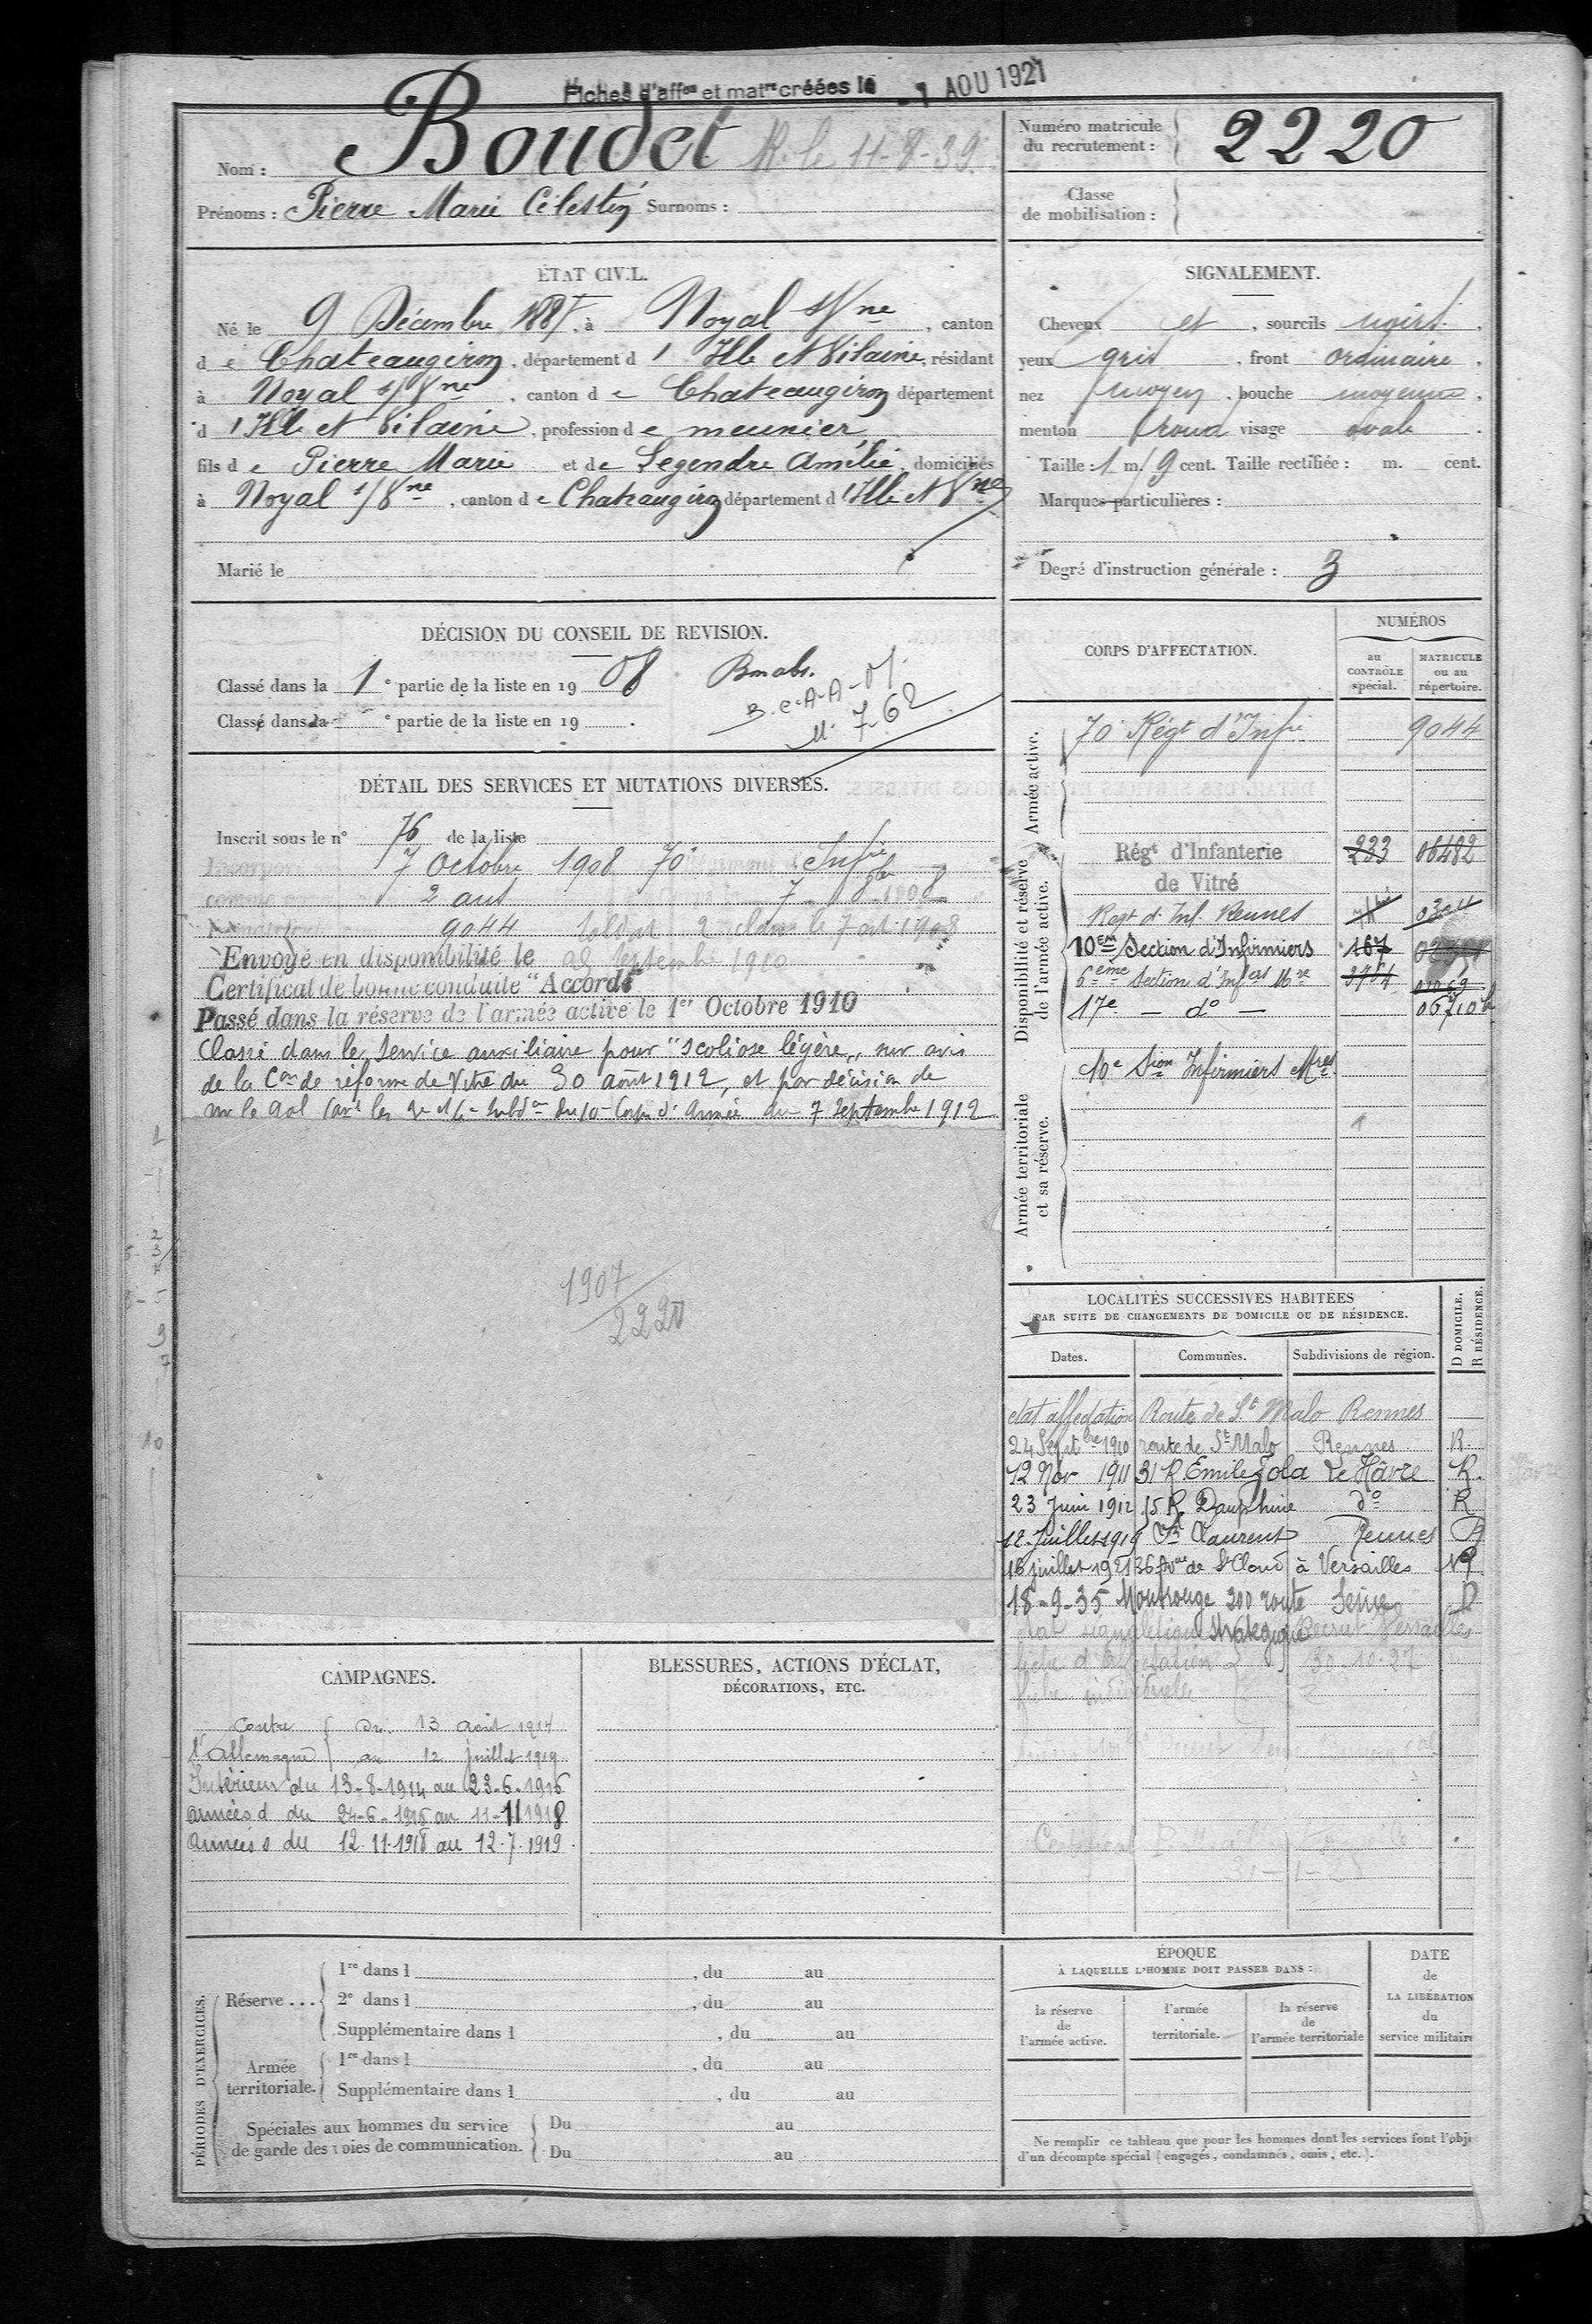 Fiches d'affon et matre créées le -1 AOU 1921
Nom : Boudet R. le 11-8-39.
Prénoms : Pierre Marie Célestin Surnoms :
Numéro matricule du recrutement : 2220
Classe de mobilisation :
ÉTAT CIVIL.
Né le 9 Décembre 1887, à Noyal s/Vne, canton
de Chateaugiron, département d'Ille et Vilaine, résidant
à Noyal s/Vne, canton de Chateaugiron département
d'Ille et Vilaine, profession de meunier
fils de Pierre Marie et de Legendre Amélie, domiciliés
à Noyal s/Vne, canton de Chateaugiron département d'Ille et Vne
Marié le
SIGNALEMENT.
Cheveux et , sourcils noirs.
yeux gris , front ordinaire ,
nez moyen , bouche moyenne ,
menton rond visage ovale .
Taille : 1 m. cent. Taille rectifiée : m. cent.
Marques particulières :
Degré d'instruction générale : 3
DÉCISION DU CONSEIL DE REVISION.
Classé dans la 1e partie de la liste en 1908
Classé dans la e partie de la liste en 19 .
M. 7-62
DÉTAIL DES SERVICES ET MUTATIONS DIVERSES.
Inscrit sous le n° 76 de la liste
7 Octobre 1908 70e Infie
2 ans 7 8bre 1908
9044 soldat 2e classe le 7 oct 1908
Envoyé en disponibilité le 28 Septembre 1910
Certificat de bonne conduite "Accordé"
Passé dans la réserve de l'armée active le 1er Octobre 1910
Classé dans le service auxiliaire pour "scoliose légère" sur avis
de la Con de réforme de Vitré du 30 août 1912, et par décision de
du 10e Corps d'Armée du 7 Septembre 1912
1907
2220
CORPS D'AFFECTATION.
NUMÉROS
au CONTRÔLE spécial.
MATRICULE ou au répertoire.
Armée active.
70e Régt d'Infie 9044
Disponibilité et réserve de l'armée active.
Régt d'Infanterie 233 06482
de Vitré
Regt d'Inf. Rennes
10EM Section d'Infirmiers 167
6ème Section d'Infers Mre
17e — do —
Armée territoriale et sa réserve.
10e Sion Infirmiers Mres
LOCALITÉS SUCCESSIVES HABITÉES
PAR SUITE DE CHANGEMENTS DE DOMICILE OU DE RÉSIDENCE.
Dates. Communes. Subdivisions de région. D DOMICILE. R RÉSIDENCE.
etat affectation Route de St Malo Rennes
24 Septbre 1910 route de St Malo Rennes R
12 Nov 1911 31 R. Emile Zola Le Hâvre R.
23 Juin 1912 15 R. Dauphine do R
12 Juillet 1919 St Laurent Rennes R
16 juillet 1921 36 Avue de St Cloud à Versailles R
18-9-35 Montrouge 200 route Seine D
stratégique
30.10.27
CAMPAGNES.
Contre l'Allemagne { du 13 août 1914
au 12 juillet 1919
Intérieur du 13-8-1914 au 23-6-1916
armées d du 24-6-1916 au 11-11 1918
armées d du 12.11.1918 au 12.7.1919.
BLESSURES, ACTIONS D'ÉCLAT,
DÉCORATIONS, ETC.
PÉRIODES D'EXERCICES.
Réserve ... 1re dans l , du au
2e dans l , du au
Supplémentaire dans l , du au
Armée territoriale. 1re dans l , du au
Supplémentaire dans l , du au
Spéciales aux hommes du service de garde des voies de communication. Du au
Du au
ÉPOQUE
À LAQUELLE L'HOMME DOIT PASSER DANS :
la réserve de l'armée active.
l'armée territoriale.
la réserve de l'armée territoriale
DATE de LA LIBÉRATION du service militaire
Ne remplir ce tableau que pour les hommes dont les services font l'obje
d'un décompte spécial (engagés, condamnés, omis, etc.).